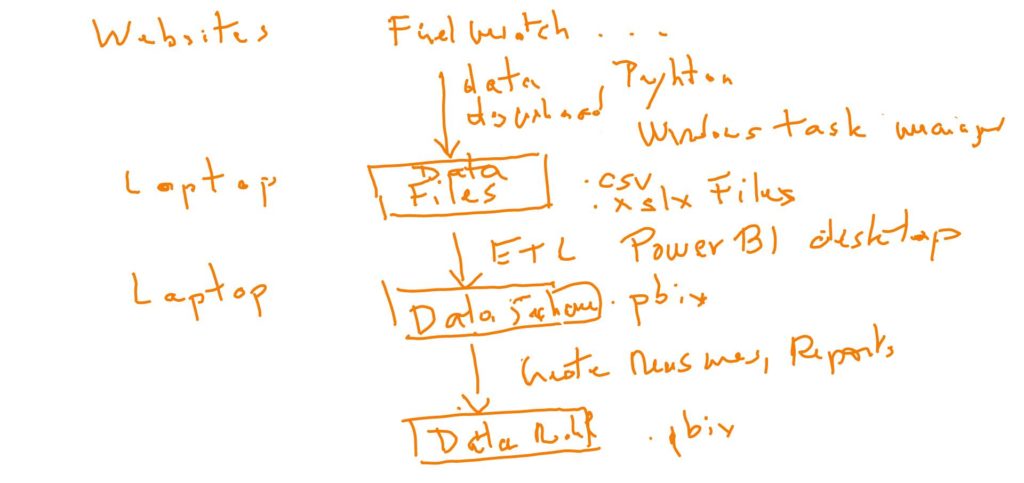 Websites Fuelwatch ...
data Pyhton
download
Windows task manager
Laptop Data Files .csv .xslx Files
ETL Power BI desktop
Laptop Data Schema .pbix
Create Measures, Reports
Data .pbix